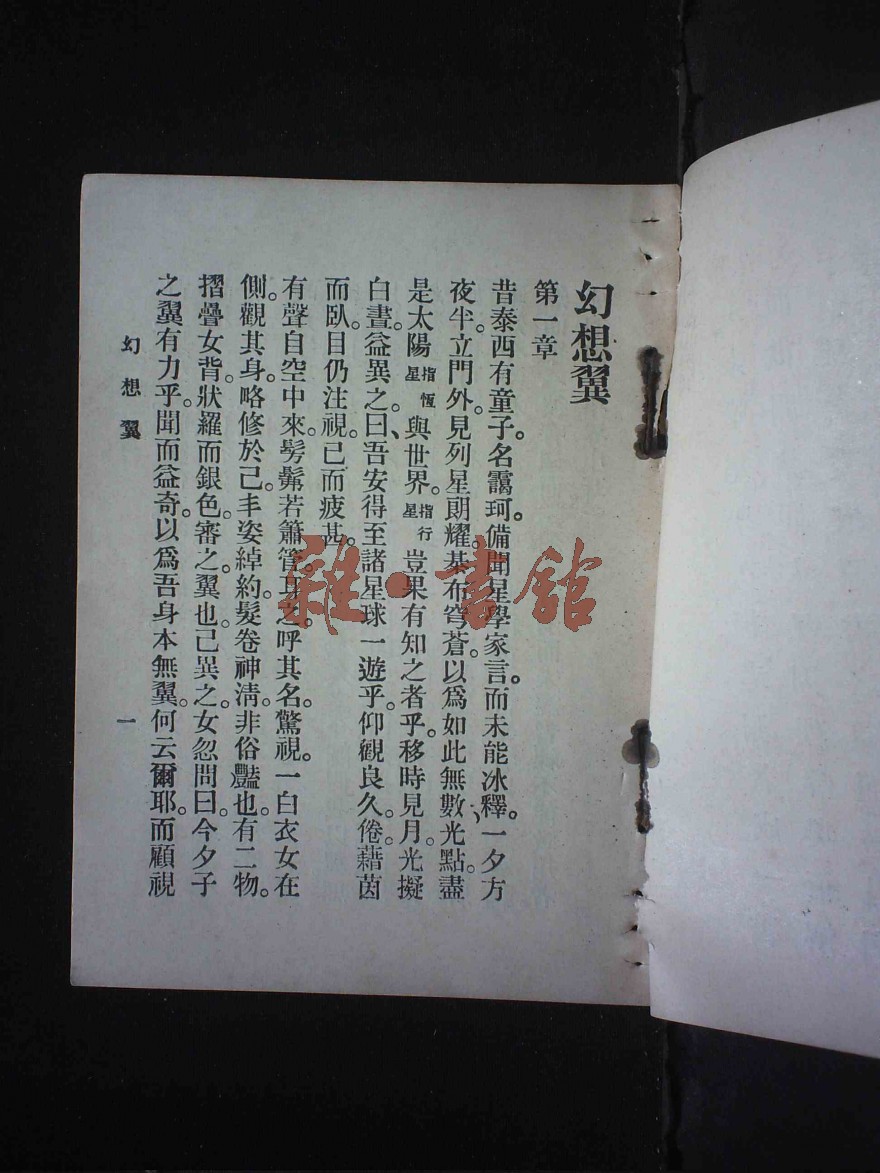 幻想翼
第一章
昔泰西有童子。名靄珂。備聞星學家言。而未能冰釋。一夕方
夜半。立門外。見列星朗耀。棊布穹蒼。以爲如此無數光點。盡
是太陽指恆星與世界。指行星豈果有知之者乎。移時見月。光擬
白晝。益異之。曰、吾安得至諸星球一遊乎。仰觀良久。倦。藉茵
而臥。目仍注視。已而疲甚。
有聲自空中來。髣髴若簫管。耳之。呼其名。驚視。一白衣女在
側。觀其身。略修於己。丰姿綽約。髮卷神淸。非俗豔也。有二物。
摺疊女背。狀羅而銀色。審之。翼也。己異之。女忽問曰。今夕子
之翼有力乎。聞而益奇。以爲吾身本無翼。何云爾耶。而顧視
幻想翼
一
雜·書館